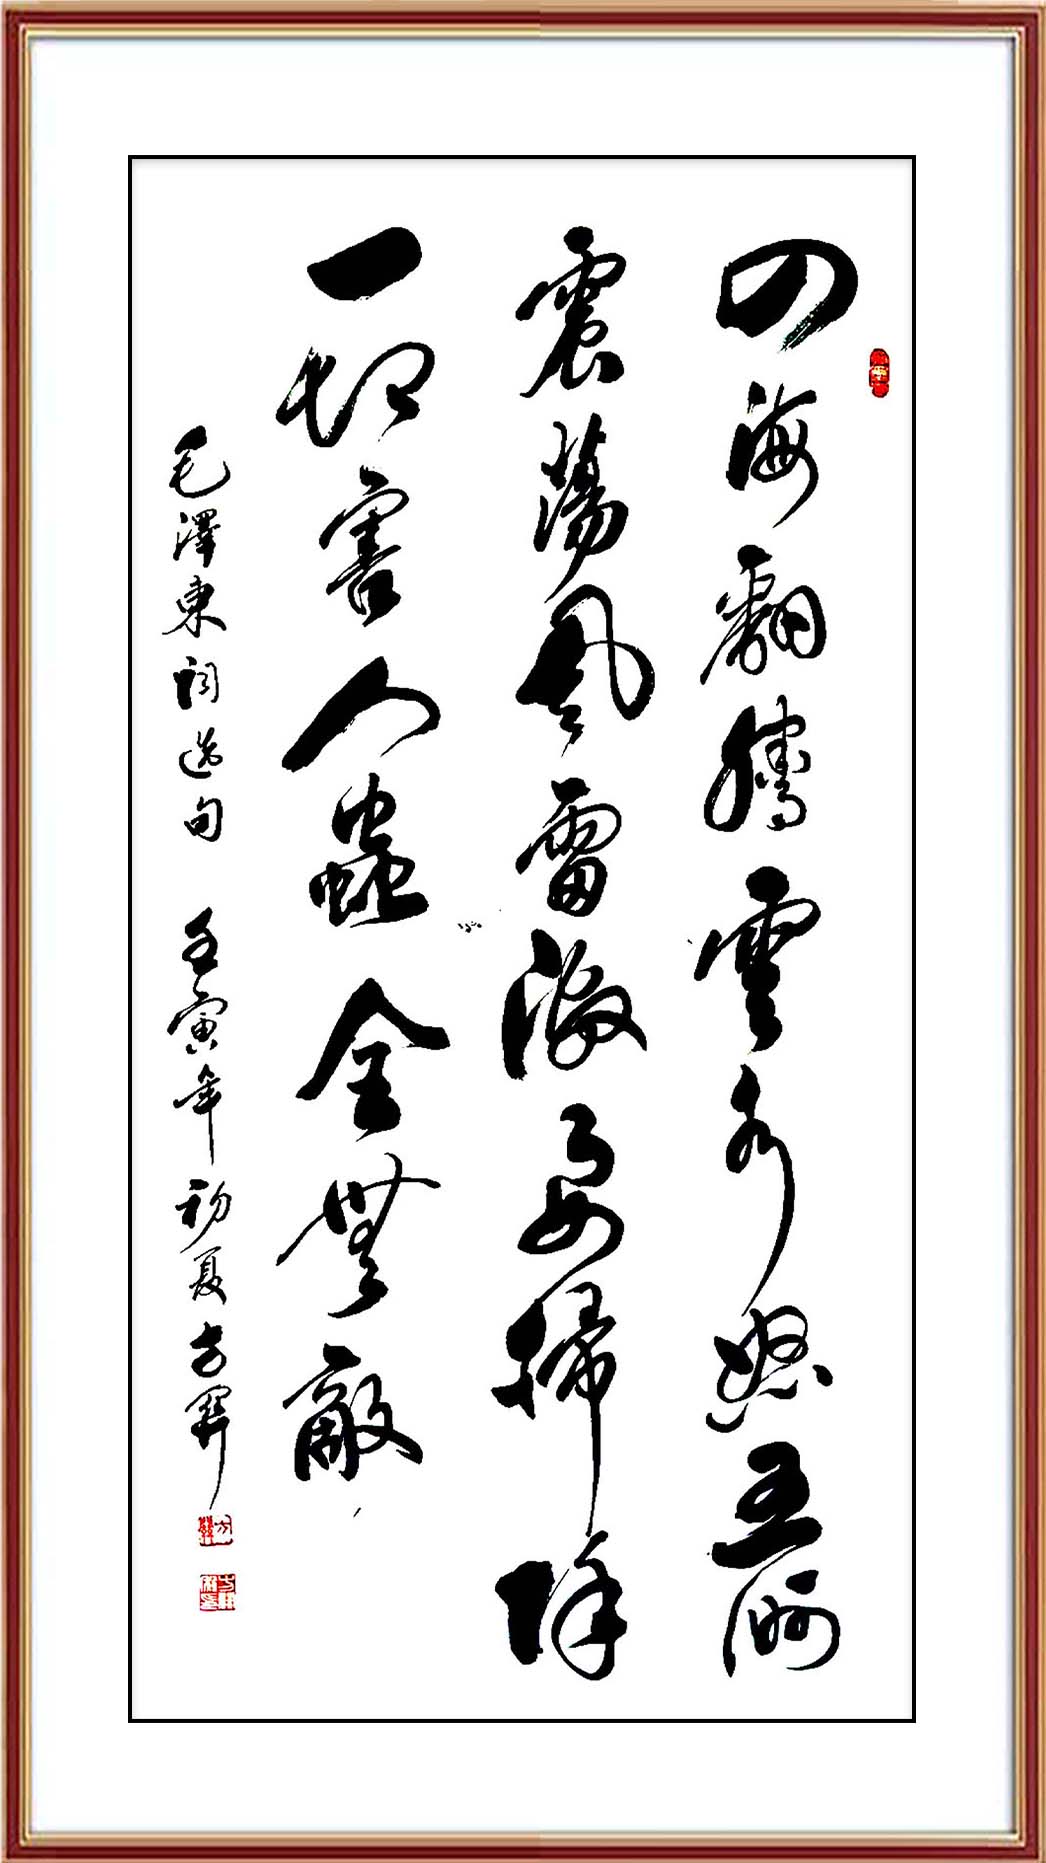 四海翻騰雲水怒五洲
震蕩風雷激要掃除
一切害人蟲全無敵
毛澤東詞選句 壬寅年初夏方